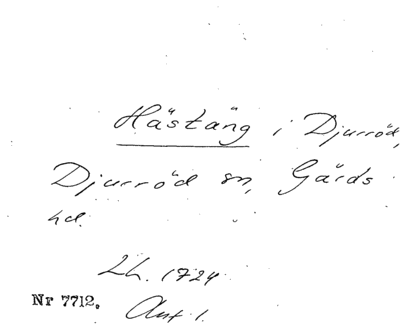 Hästäng i Djurröd,
Djurröd sn, Gärds
hd.
Lh. 1724
Nr 7712. Ant 1.